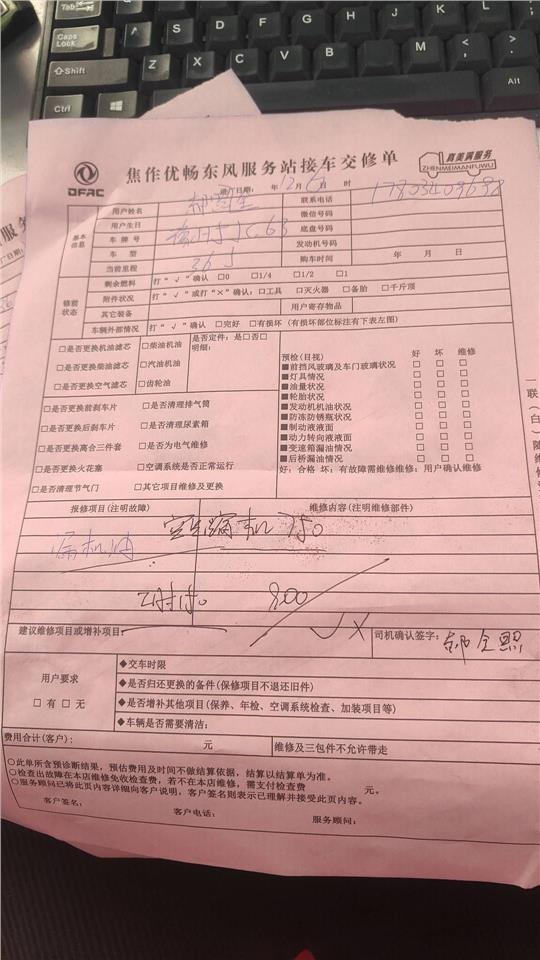 Caps Lock
A
S
D
F
G
H
J
K
L
Shift
Z
X
C
V
B
N
M
Ctrl
Alt
DFAC
焦作优畅东风服务站接车交修单
真美满服务
ZHENMEIMANFUWU
进厂日期： 年 12 月 6 日 时
基本信息
用户姓名
联系电话
用户生日
微信号码
车牌号
底盘号码
车型
发动机号码
当前里程
购车时间 年 月 日
修前状态
剩余燃料 打“√”确认 □0 □1/4 □1/2 □1
附件状况 打“√”或打“×”确认：□工具 □灭火器 □备胎 □千斤顶
其它装备 用户寄存物品
车辆外部情况 打“√”确认 □完好 □有损坏（有损坏部位标注有下表左图）
□是否更换机油滤芯 □柴油机油 是否定件：是□否□
明细：
□是否更换柴油滤芯 □汽油机油
□是否更换空气滤芯 □齿轮油
预检（目视） 好 坏 维修
■前挡风玻璃及车门玻璃状况 □ □ □
■灯具情况 □ □ □
■油量状况 □ □ □
■轮胎状况 □ □ □
■发动机机油状况 □ □ □
■防冻防锈瓶状况 □ □ □
■制动液液面 □ □ □
■动力转向液液面 □ □ □
■变速箱漏油情况 □ □ □
■后桥漏油情况 □ □ □
好：合格 坏：有故障需维修维修：用户确认维修
□是否更换前刹车片 □是否清理排气筒
□是否更换后刹车片 □是否清理尿素箱
□是否更换离合三件套 □是否为电气维修
□是否更换火花塞 □空调系统是否正常运行
□是否清理节气门 □其它项目维修及更换
报修项目（注明故障） 维修内容（注明维修部件）
漏机油
750
800
建议维修项目或增补项目
司机确认签字：
用户要求
□有 □无
◆交车时限
◆是否归还更换的备件（保修项目不退还旧件）
◆是否增补其他项目（保养、年检、空调系统检查、加装项目等）
◆车辆是否需要清洁：
费用合计（客户）： 元 维修及三包件不允许带走
○此单所含预诊断结果，预估费用及时间不做结算依据，结算以结算单为准。
○检查出故障在本店维修免收检查费，若不在本店维修，需支付检查费 元。
○服务顾问已将此页内容详细向客户说明，客户签名则表示已理解并接受此页内容。
客户签名： 客户电话： 服务顾问：